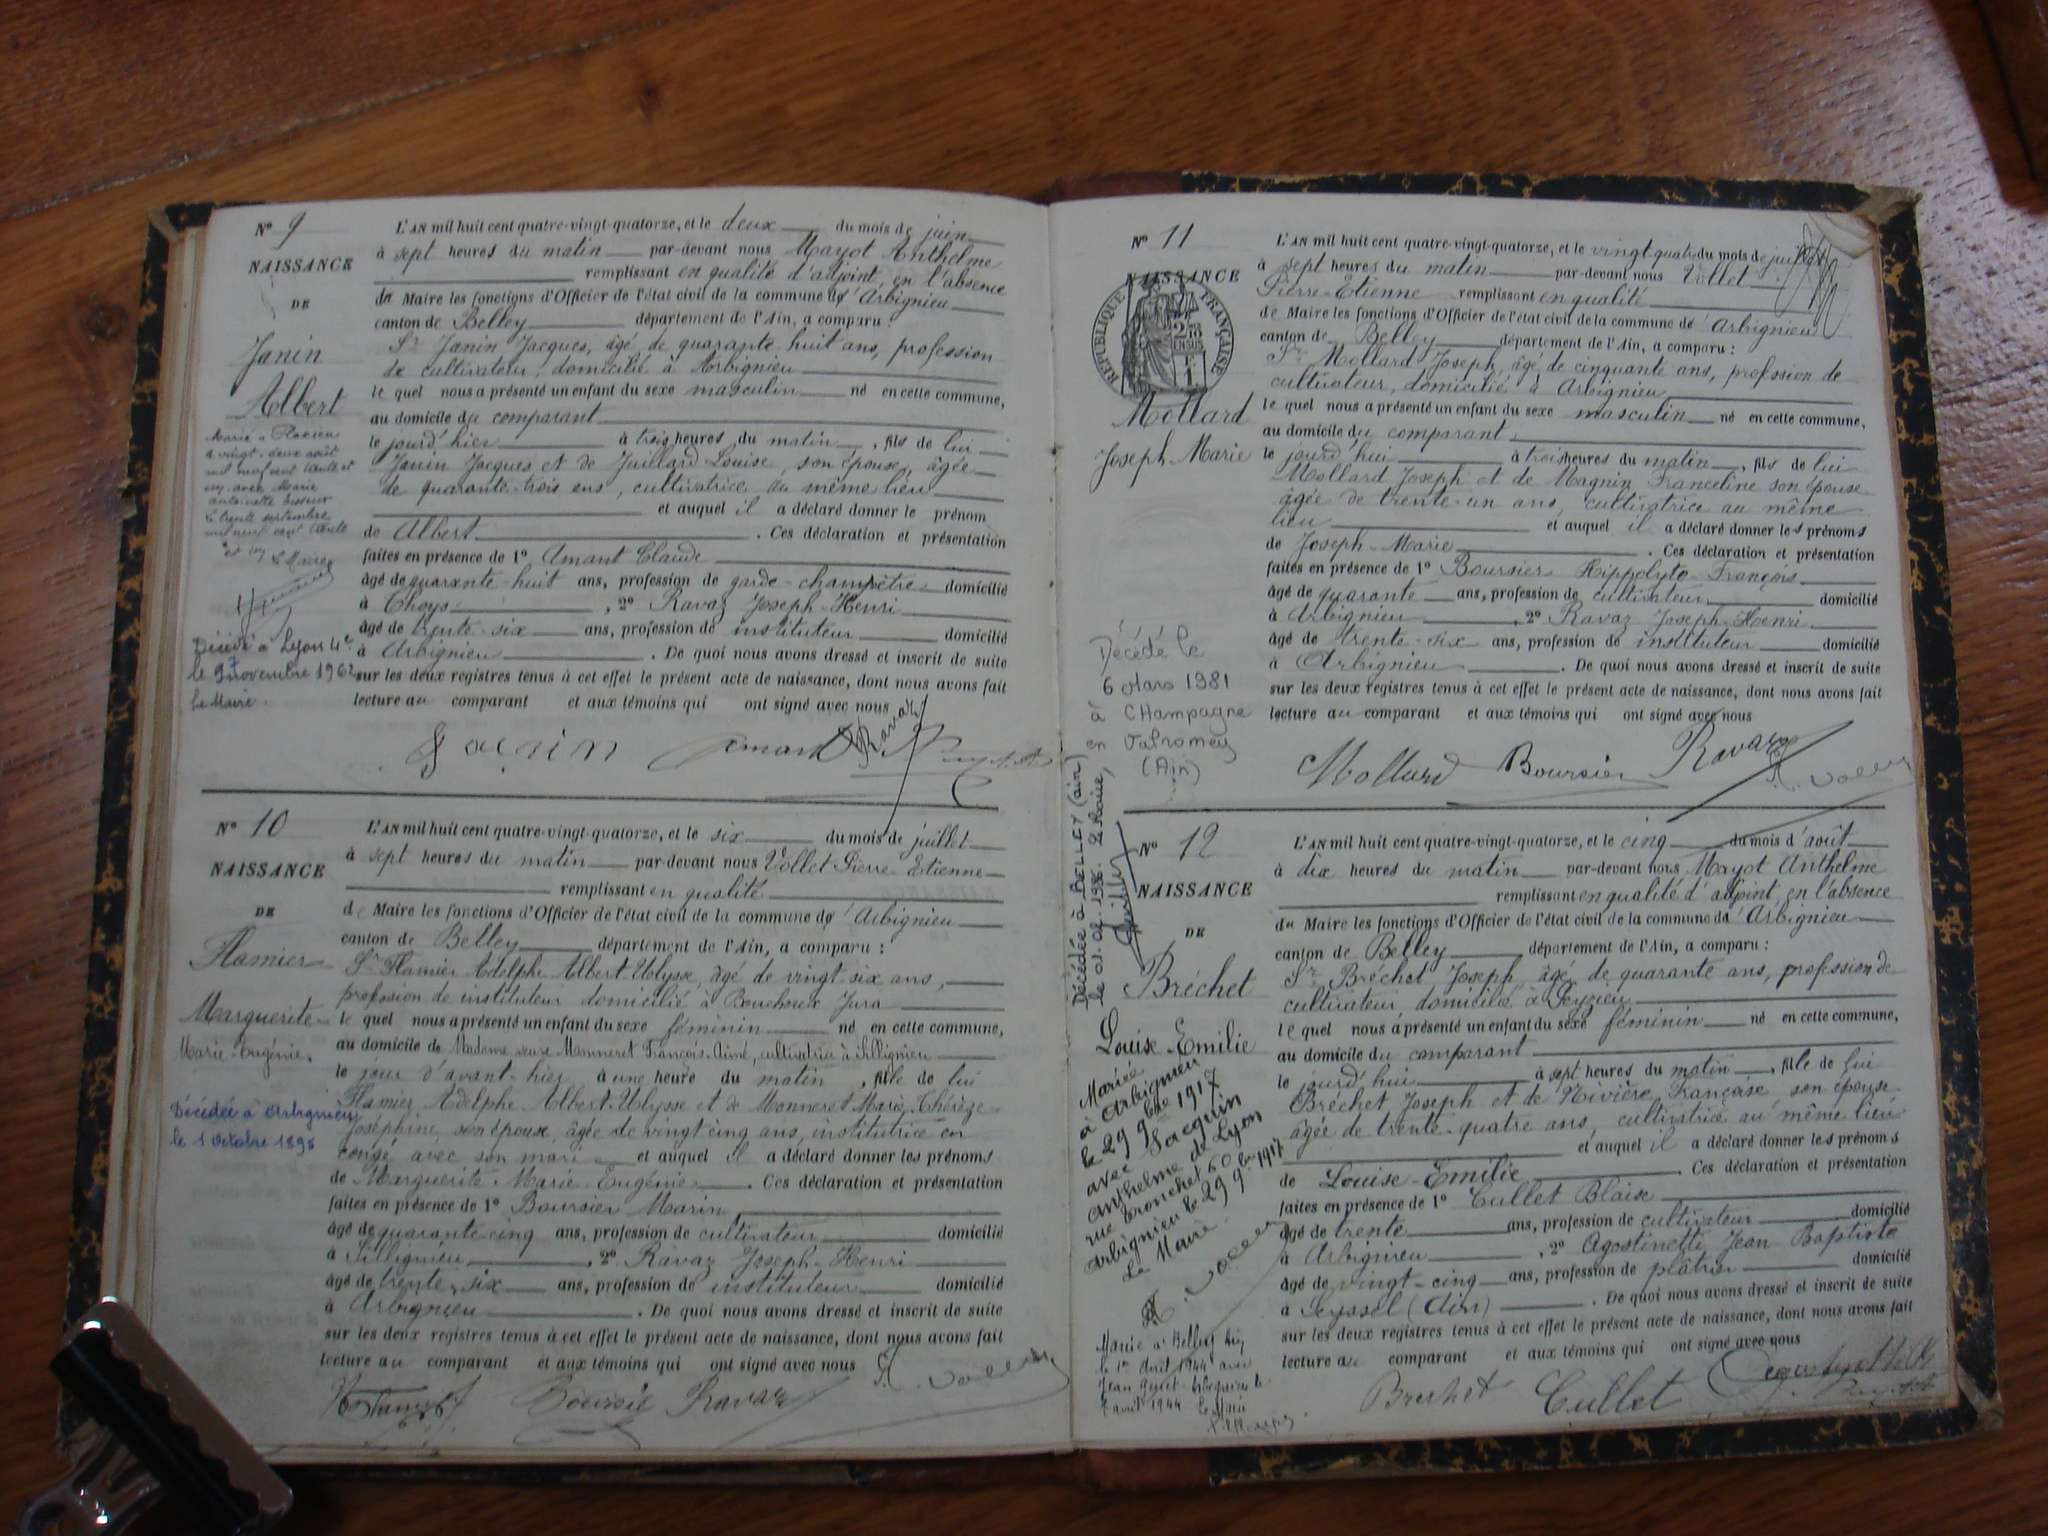 N° 9
NAISSANCE
DE
Janin
Albert
Marié à
le vingt-deux août
mil neuf cent trente et
un avec Marie
le trente septembre
mil neuf cent trente
et un Le Maire
Décédé à Lyon 4e
le 9 novembre 1962
Le Maire
L'AN mil huit cent quatre-vingt-quatorze, et le deux du mois de juin
à sept heures du matin par-devant nous Mayot Anthelme
remplissant en qualité d'adjoint, en l'absence
du Maire les fonctions d'Officier de l'état civil de la commune d'Arbignieu
canton de Belley département de l'Ain, a comparu :
Sr Janin Jacques, âgé de quarante-huit ans, profession
de cultivateur, domicilié à Arbignieu
le quel nous a présenté un enfant du sexe masculin né en cette commune,
au domicile du comparant
le jourd'hier à trois heures du matin, fils de lui
Janin Jacques et de Juillard Louise, son épouse, âgée
de quarante-trois ans, cultivatrice au même lieu
et auquel il a déclaré donner le prénom
de Albert. Ces déclaration et présentation
faites en présence de 1° Amant Claude
âgé de quarante huit ans, profession de garde-champêtre domicilié
à Thoys, 2° Ravaz Joseph-Henri
âgé de trente-six ans, profession de instituteur domicilié
à Arbignieu. De quoi nous avons dressé et inscrit de suite
sur les deux registres tenus à cet effet le présent acte de naissance, dont nous avons fait
lecture au comparant et aux témoins qui ont signé avec nous
Janin Amant Ravaz
N° 10
NAISSANCE
DE
Flamier
Marguerite
Marie-Eugénie
Décédée à Arbignieu
le 1 octobre 1895
L'AN mil huit cent quatre-vingt-quatorze, et le six du mois de juillet
à sept heures du matin par-devant nous Vollet Pierre-Etienne
remplissant en qualité
de Maire les fonctions d'Officier de l'état civil de la commune d'Arbignieu
canton de Belley département de l'Ain, a comparu :
Sr Flamier Adolphe Albert Ulysse, âgé de vingt-six ans,
profession de instituteur domicilié à Bouchoux Jura
le quel nous a présenté un enfant du sexe féminin né en cette commune,
au domicile de Madame veuve Monneret François-Aimé, cultivatrice à Sillignieu
le jour d'avant-hier à une heure du matin, fille de lui
Flamier Adolphe Albert Ulysse et de Monneret Marie-Thérèze
Joséphine, son épouse, âgée de vingt cinq ans, institutrice en
congé avec son mari et auquel il a déclaré donner les prénoms
de Marguerite-Marie-Eugénie. Ces déclaration et présentation
faites en présence de 1° Boursier Marin
âgé de quarante cinq ans, profession de cultivateur domicilié
à Sillignieu, 2° Ravaz Joseph-Henri
âgé de trente-six ans, profession de instituteur domicilié
à Arbignieu. De quoi nous avons dressé et inscrit de suite
sur les deux registres tenus à cet effet le présent acte de naissance, dont nous avons fait
lecture au comparant et aux témoins qui ont signé avec nous
Boursier Ravaz
N° 11
NAISSANCE
RÉPUBLIQUE FRANÇAISE
Mollard
Joseph-Marie
Décédé le
6 Mars 1981
CHampagne
Valromey
(Ain)
L'AN mil huit cent quatre-vingt-quatorze, et le vingt quatre du mois de juillet
à sept heures du matin par-devant nous Vollet
Pierre-Etienne remplissant en qualité
de Maire les fonctions d'Officier de l'état civil de la commune d'Arbignieu
canton de Belley département de l'Ain, a comparu :
Sr Mollard Joseph, âgé de cinquante ans, profession de
cultivateur, domicilié à Arbignieu
le quel nous a présenté un enfant du sexe masculin né en cette commune,
au domicile du comparant
le jourd'hui à trois heures du matin, fils de lui
Mollard Joseph et de Magnin Franceline son épouse
âgée de trente-un ans, cultivatrice au même
lieu et auquel il a déclaré donner les prénoms
de Joseph-Marie. Ces déclaration et présentation
faites en présence de 1° Boursier Hippolyte-François
âgé de quarante ans, profession de cultivateur domicilié
à Arbignieu, 2° Ravaz Joseph-Henri
âgé de trente-six ans, profession de instituteur domicilié
à Arbignieu. De quoi nous avons dressé et inscrit de suite
sur les deux registres tenus à cet effet le présent acte de naissance, dont nous avons fait
lecture au comparant et aux témoins qui ont signé avec nous
Mollard Boursier Ravaz Vollet
N° 12
NAISSANCE
DE
Bréchet
Louise-Emilie
Décédée à BELLEY (ain)
Mariée
à Arbignieu
le 29 9bre 1917
avec Jacquin
Anthelme de Lyon
rue Tronchet 60
Arbignieu le 29 9bre 1917
Le Maire
Mariée à Belley
le 1er avril 1944 avec
7 avril 1944 Le Maire
L'AN mil huit cent quatre-vingt-quatorze, et le cinq du mois d'août
à dix heures du matin par-devant nous Mayot Anthelme
remplissant en qualité d'adjoint, en l'absence
du Maire les fonctions d'Officier de l'état civil de la commune d'Arbignieu
canton de Belley département de l'Ain, a comparu :
Sr Bréchet Joseph, âgé de quarante ans, profession de
cultivateur, domicilié à Peyzieu
le quel nous a présenté un enfant du sexe féminin né en cette commune,
au domicile du comparant
le jourd'hui à sept heures du matin, fille de lui
Bréchet Joseph et de Rivière Françoise son épouse
âgée de trente-quatre ans, cultivatrice au même lieu
et auquel il a déclaré donner les prénoms
de Louise-Emilie. Ces déclaration et présentation
faites en présence de 1° Cullet Blaise
âgé de trente ans, profession de cultivateur domicilié
à Arbignieu, 2° Agostinetti Jean-Baptiste
âgé de vingt-cinq ans, profession de plâtrier domicilié
à Seyssel (Ain). De quoi nous avons dressé et inscrit de suite
sur les deux registres tenus à cet effet le présent acte de naissance, dont nous avons fait
lecture au comparant et aux témoins qui ont signé avec nous
Brechet Cullet